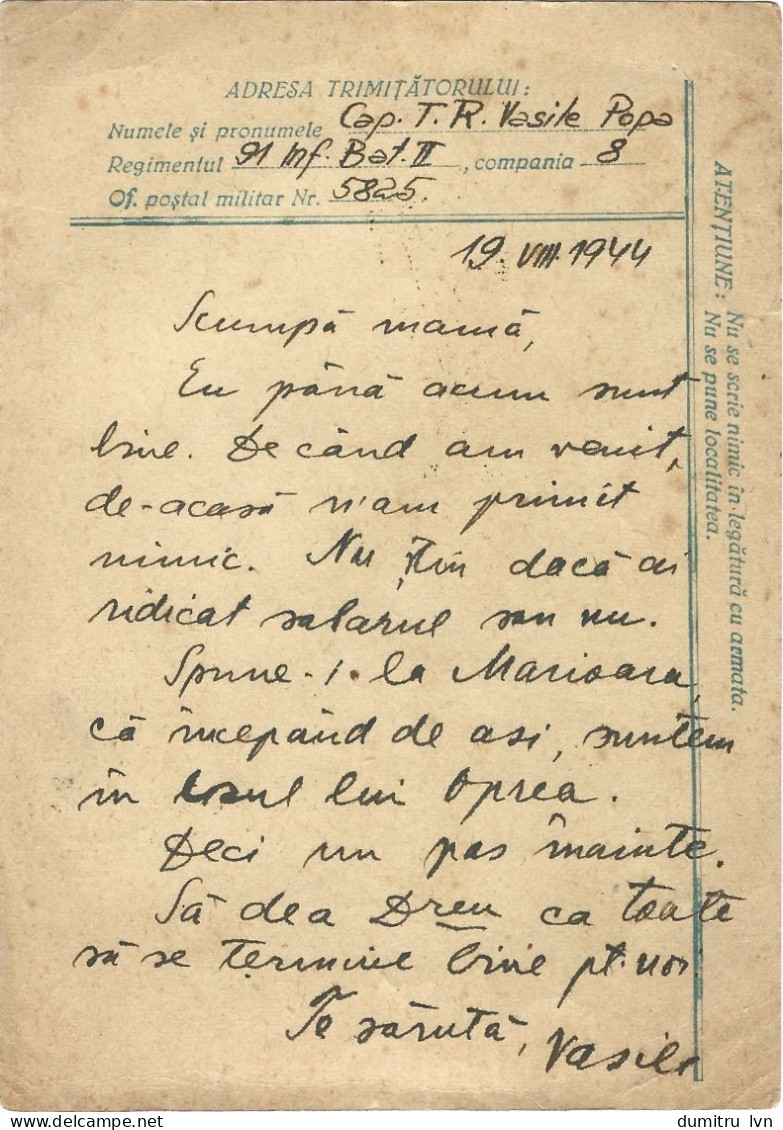 ADRESA TRIMIȚĂTORULUI:
Numele și pronumele Cap. T. R. Vasile Popa
Regimentul 91 Inf. Bat. II, compania 8
Of. poștal militar Nr. 5825.
19. VIII. 1944
Scumpă mamă,
Eu până acum sunt
bine. De când am venit,
de-acasă n'am primit
nimic. Nu știu dacă ai
ridicat salarul sau nu.
Spune-i la Marioara,
că începând de asi, suntem
în lui Oprea.
Deci un pas înainte.
Să dea Dzeu ca toate
să se termine bine pt. noi.
Te sărută,
Vasile
ATENȚIUNE: Nu se scrie nimic în legătură cu armata.
Nu se pune localitatea.
dumitru lvn